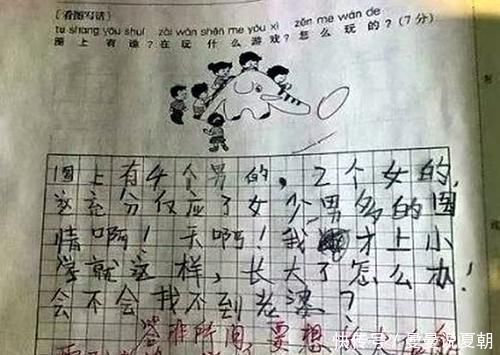 ［看图写话］
tú shang yǒu shuí zài wán shén me yóu xì zěn me wán de
图上有谁？在玩什么游戏？怎么玩的？(7分)
图上有4个男的，2个女的，
这充分仅应了女少男多的国
情啊！天啊！我才上小
学就这样，长大了怎么办！
会不会找不到老婆？
答非所问，要想
快传号/曼曼说夏朝